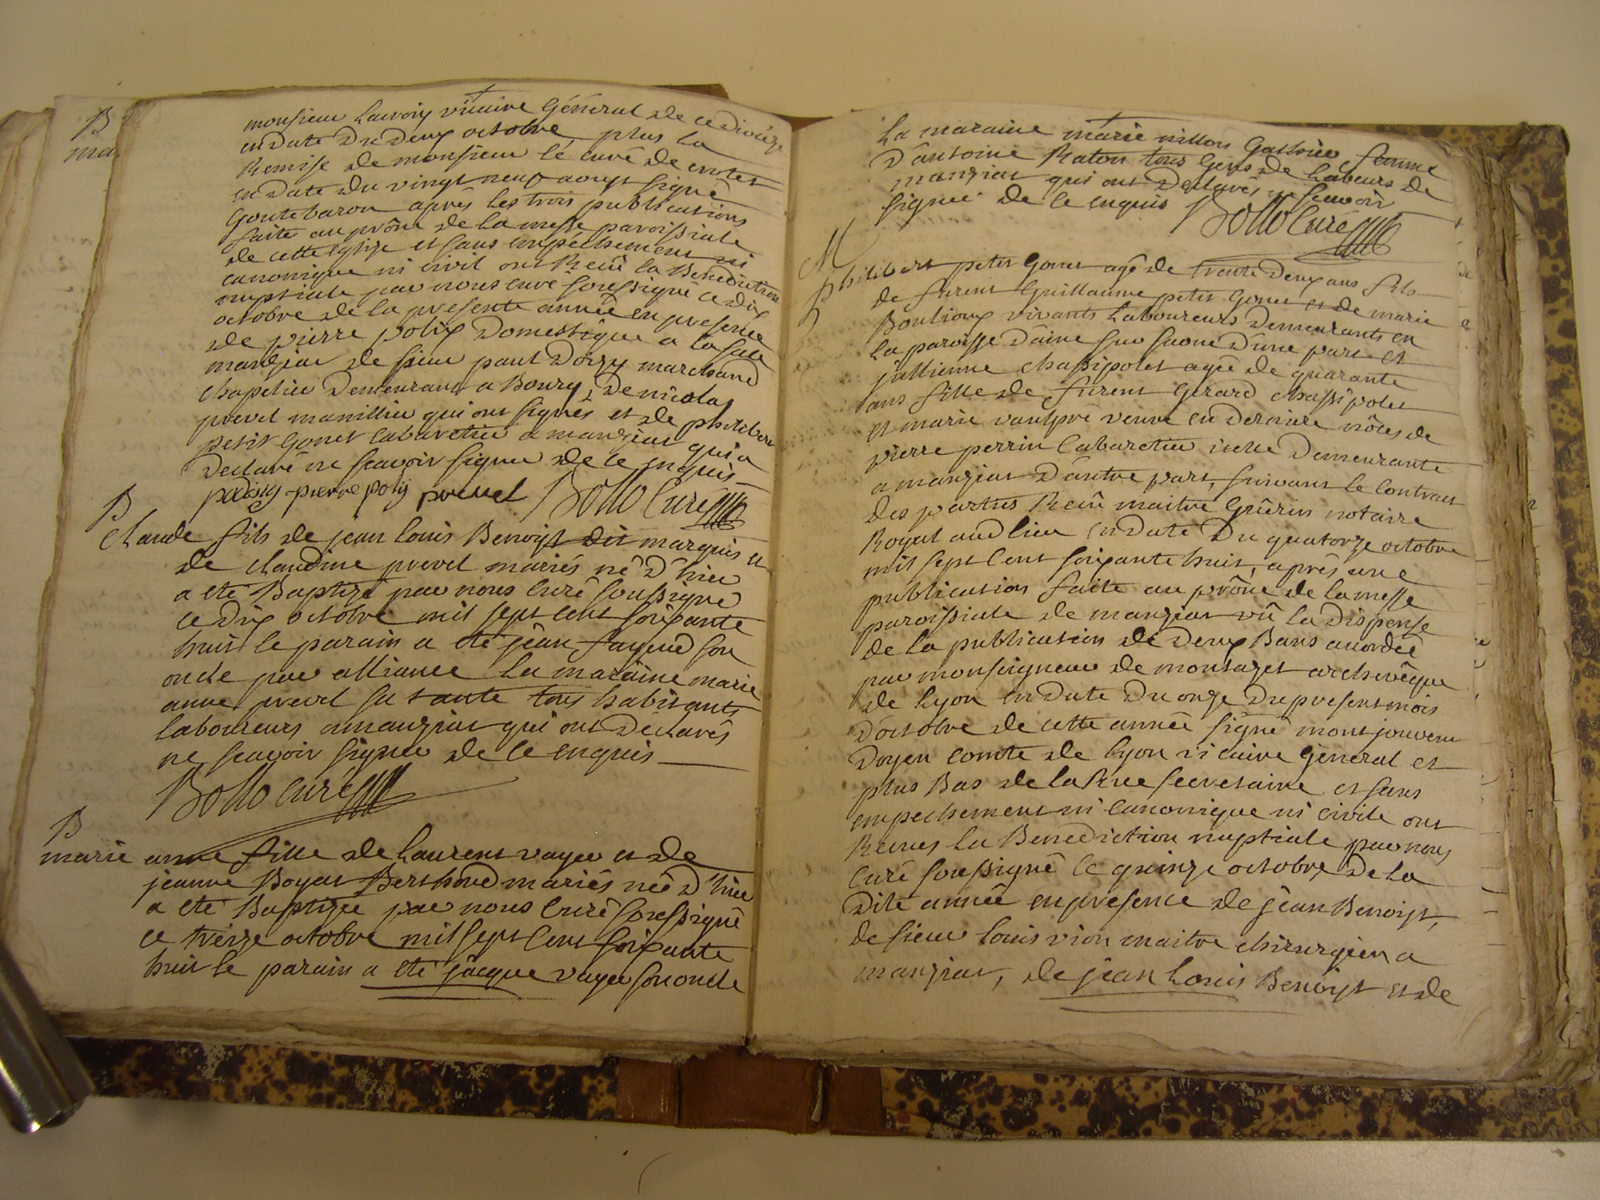 monsieur Lavoix vicaire Général de ce diocèze
en date du deux octobre plus la
Remise de monsieur le curé de crotet
en date du vingt neuf aoust signé
Goutebaron après les trois publications
faite au prône de la messe paroissiale
de cette eglize et sans empechement ni
canonique ni civil ont Receu la Benediction
nuptiale par nous curé soussigné ce dix
octobre de la presente année en presence
de pierre polix domestique a la sale
manziat de sieur paul doizy marchand
chapelier demeurant a Bourg, de nicolas
prevel manillier qui ont signés et de philibert
petit Gonet cabaretier a manziat qui a
declaré ne scavoir signer de ce enquis
pdoizy pierre poly prevel Bollo Curé
B
Claude fils de jean louis Benoist dit marquis et
de claudine prevel mariés né d'hier
a eté Baptizé par nous Curé soussigné
ce dix octobre mil sept cent soixante
huit le parain a eté jean fayend son
oncle par alliance La maraine marie
anne prevel sa tante tous habitants
laboureurs a manziat qui ont declarés
ne scavoir signer de ce enquis
Bollo Curé
B
marie anne fille de Laurent vayer et de
jeanne Boyat Berthoud mariés née d'hier
a eté Baptizée par nous Curé soussigné
ce treize octobre mil sept cent soixante
huit le parain a eté jacque vayer son oncle
La maraine marie nillon femme
d'antoine Raton tous Gens de Labeurs de
manziat qui ont declarés ne scavoir
signer de ce enquis Bollo Curé
M
philibert petit Gonet agé de trente deux ans fils
de furent Guillaume petit Gonet et de marie
Boulioux vivants Laboureurs demeurants en
la paroisse d'aine sur saone d'une part et
jullienne chassipolet agée de quarante
ans fille de furent Gerard chassipolet
et marie vaulpré veuve en derniere nôces de
pierre perrin Cabaretier icelle demeurante
a manziat d'autre part, suivant le Contract
des parties Receu maitre Guérin notaire
Royal aud lieu en date du quatorze octobre
mil sept Cent soixante huit, après une
publication faite au prône de la messe
paroissiale de manziat vû la dispense
de la publication de deux Bans accordée
par monseigneur de montazet archevêque
de lyon en date du onze du present mois
d'octobre de cette année signé montjouvent
Doyen comte de lyon vicaire General et
plus Bas de la Rue secretaire et sans
empechement ni canonique ni civile ont
Receus la Benediction nuptiale par nous
Curé soussigné le quinze octobre de la
Dite année en presence de jean Benoist,
de sieur louis vion maitre chirurgien a
manziat, de jean Louis Benoist et de